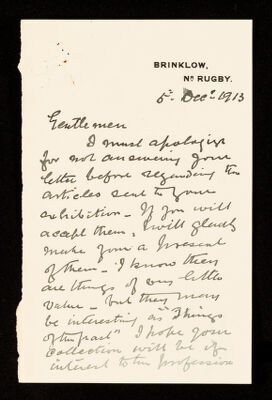 BRINKLOW,
Nr RUGBY.
5th Decr 1913
Gentlemen
I must apologize
for not answering your
letter before regarding the
articles sent to your
exhibition - If you will
accept them, I will gladly
make you a present
of them - I know they
are things of very little
value - but they may
be interesting as "Things
of the past" I hope your
collection will be of
interest to the Profession